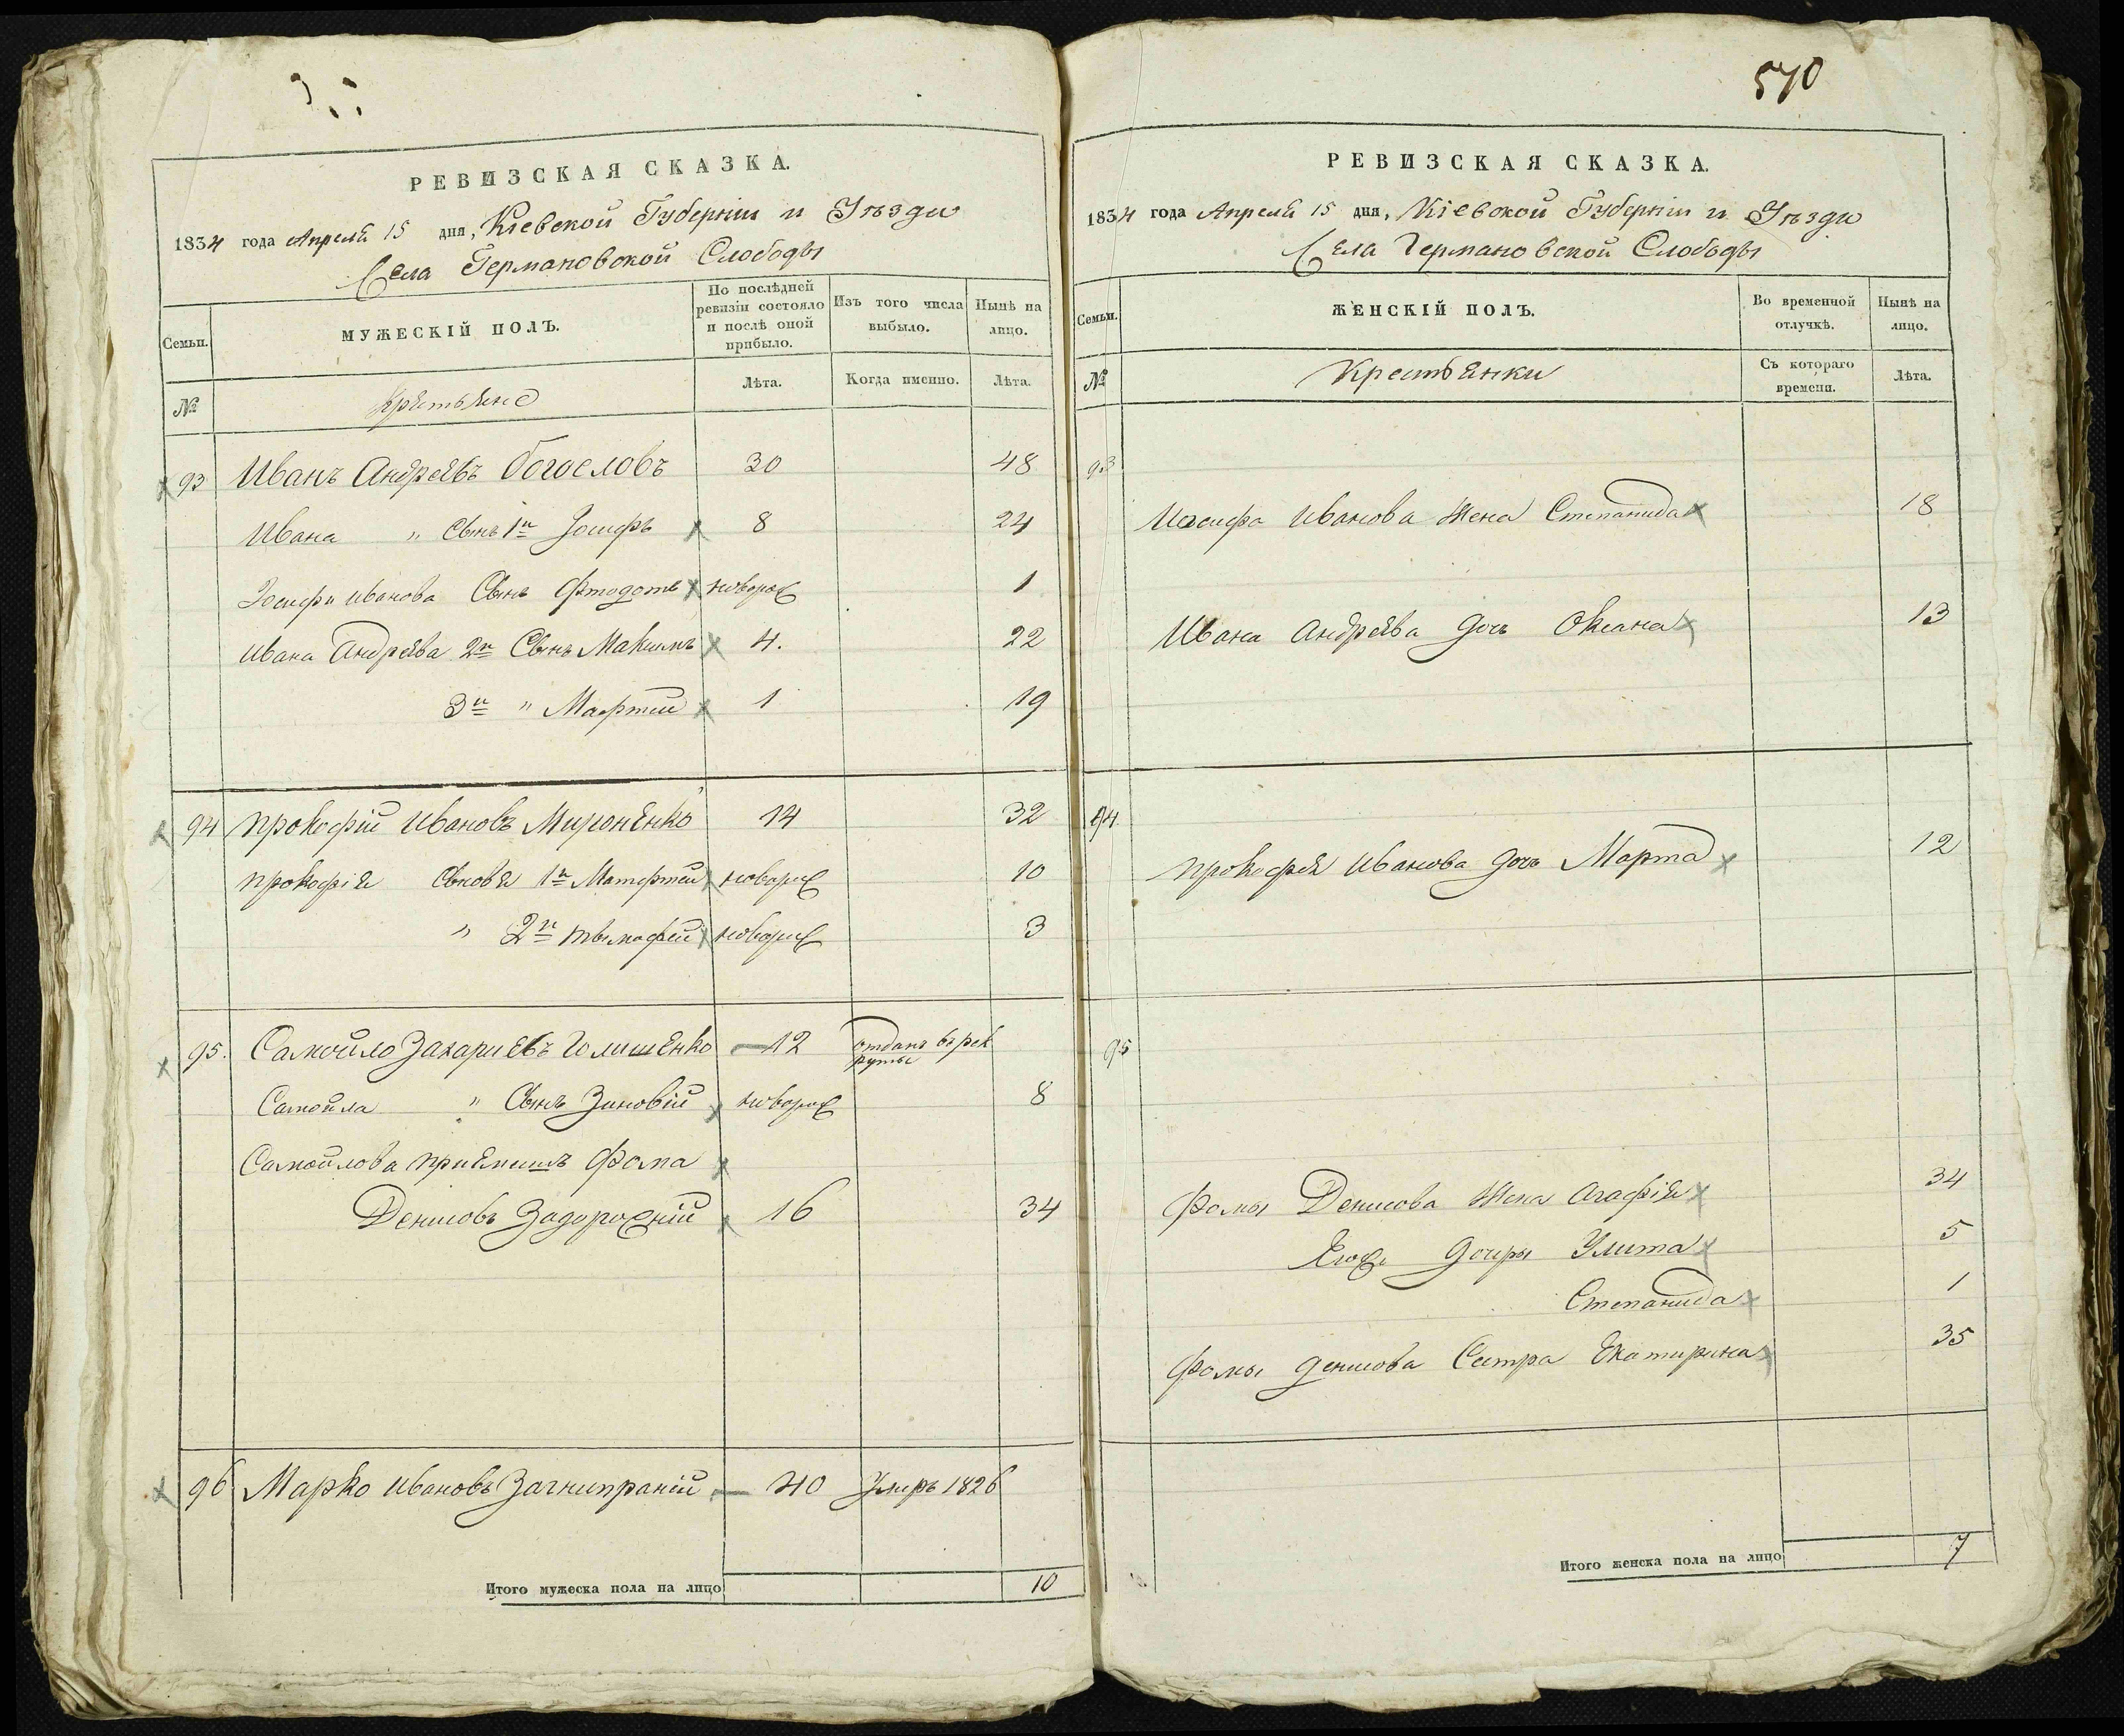 570
РЕВИЗСКАЯ СКАЗКА.
1834 года Апреля 15 дня, Кіевской Губерніи и Уѣзда
Села Германовской Слободы
Семьи.
МУЖЕСКІЙ ПОЛЪ.
По послѣдней ревизіи состояло и послѣ оной прибыло.
Изъ того числа выбыло.
Нынѣ на лицо.
№
Крестьяне
Лѣта.
Когда именно.
Лѣта.
93 Иванъ Андреевъ Богословъ 30 48
Ивана " Сынъ 1й Іосифъ 8 24
Іосифа Иванова Сынъ новорож 1
Ивана Андреева 2й Сынъ Максимъ 4. 22
3й " 1 19
94 Прокофій Ивановъ Мироненко 14 32
Прокофія Сыновя 1й новорож 10
" 2й новорож 3
95. Самойло Захариевъ — 12 отданъ въ рек
руты
Самойла " Сынъ Зиновій новорож 8
Самойлова приемишъ Фома
Денисовъ Задорожній 16 34
96 Марко Ивановъ — 40 Умръ 1826
Итого мужеска пола на лицо 10
РЕВИЗСКАЯ СКАЗКА.
1834 года Апреля 15 дня, Кіевской Губерніи и Уѣзда
Села Германовской Слободы
Семьи.
ЖЕНСКІЙ ПОЛЪ.
Во временной отлучкѣ.
Нынѣ на лицо.
№
Крестьянки
Съ котораго времени.
Лѣта.
93
Иосифа Иванова Жена Степанида 18
Ивана Андреева дочь Оксана 13
94
Прокофія Иванова дочь Марта 12
95
Фомы Денисова Жена Агафія 34
Егоже дочеры Улита 5
Степанида 1
Фомы денисова Сестра Екатирина 35
Итого женска пола на лицо 7